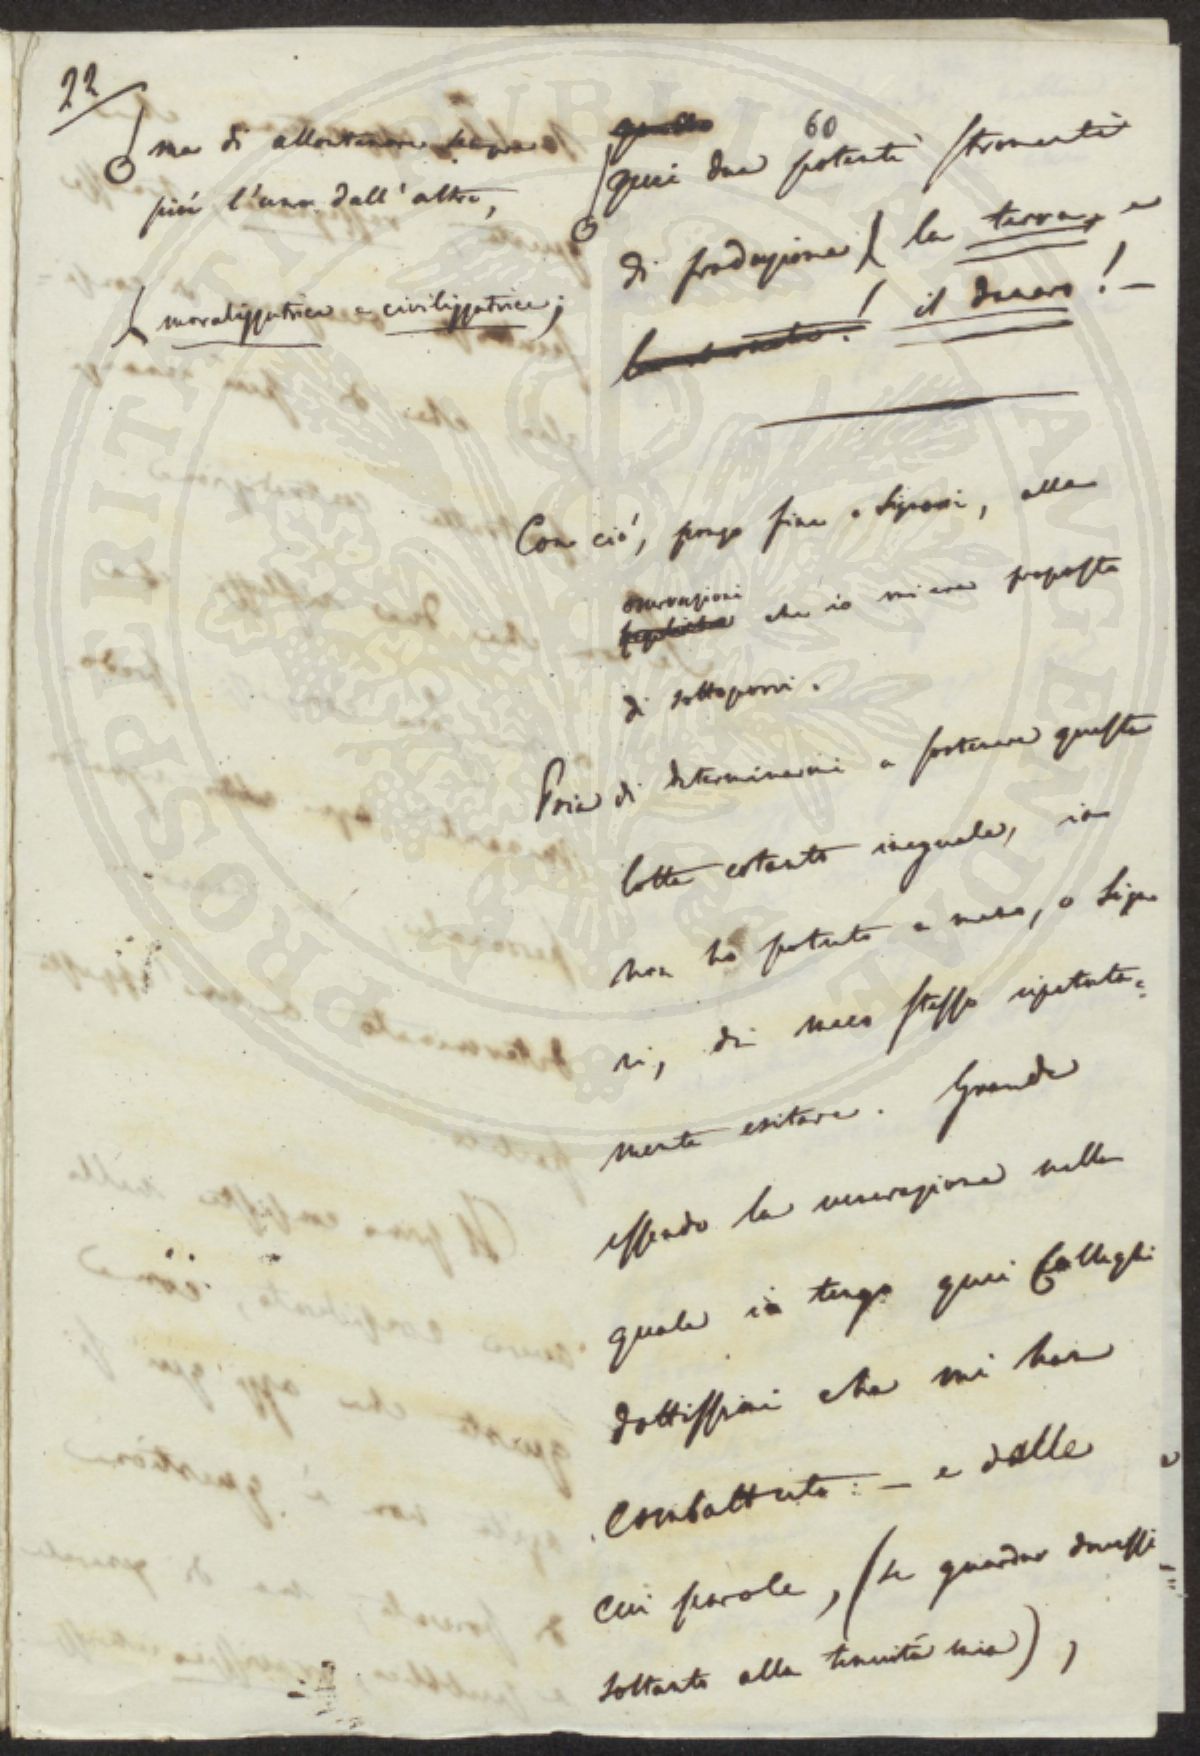 22
60
ma di allontanare sempre
più l'uno dall'altro,
moralizzatrice e civilizzatrice;
quei due potenti stromenti
di produzione la terra, e
il denaro! —
Con ciò, pongo fine o Signori, alle
osservazioni
che io mi era proposto
di sottoporvi.
Pria di determinarmi a sostenere questa
lotta cotanto ineguale, io
non ho potuto a meno, o Signo
ri, di meco stesso ripetuta=
mente esitare. Grande
essendo la venerazione nella
quale io tengo quei Colleghi
dottissimi che mi han
combattuto: — e dalle
cui parole, (se guardar dovessi
soltanto alla tenuità mia),
PROSPERITATI PUBLICAE AUGENDAE